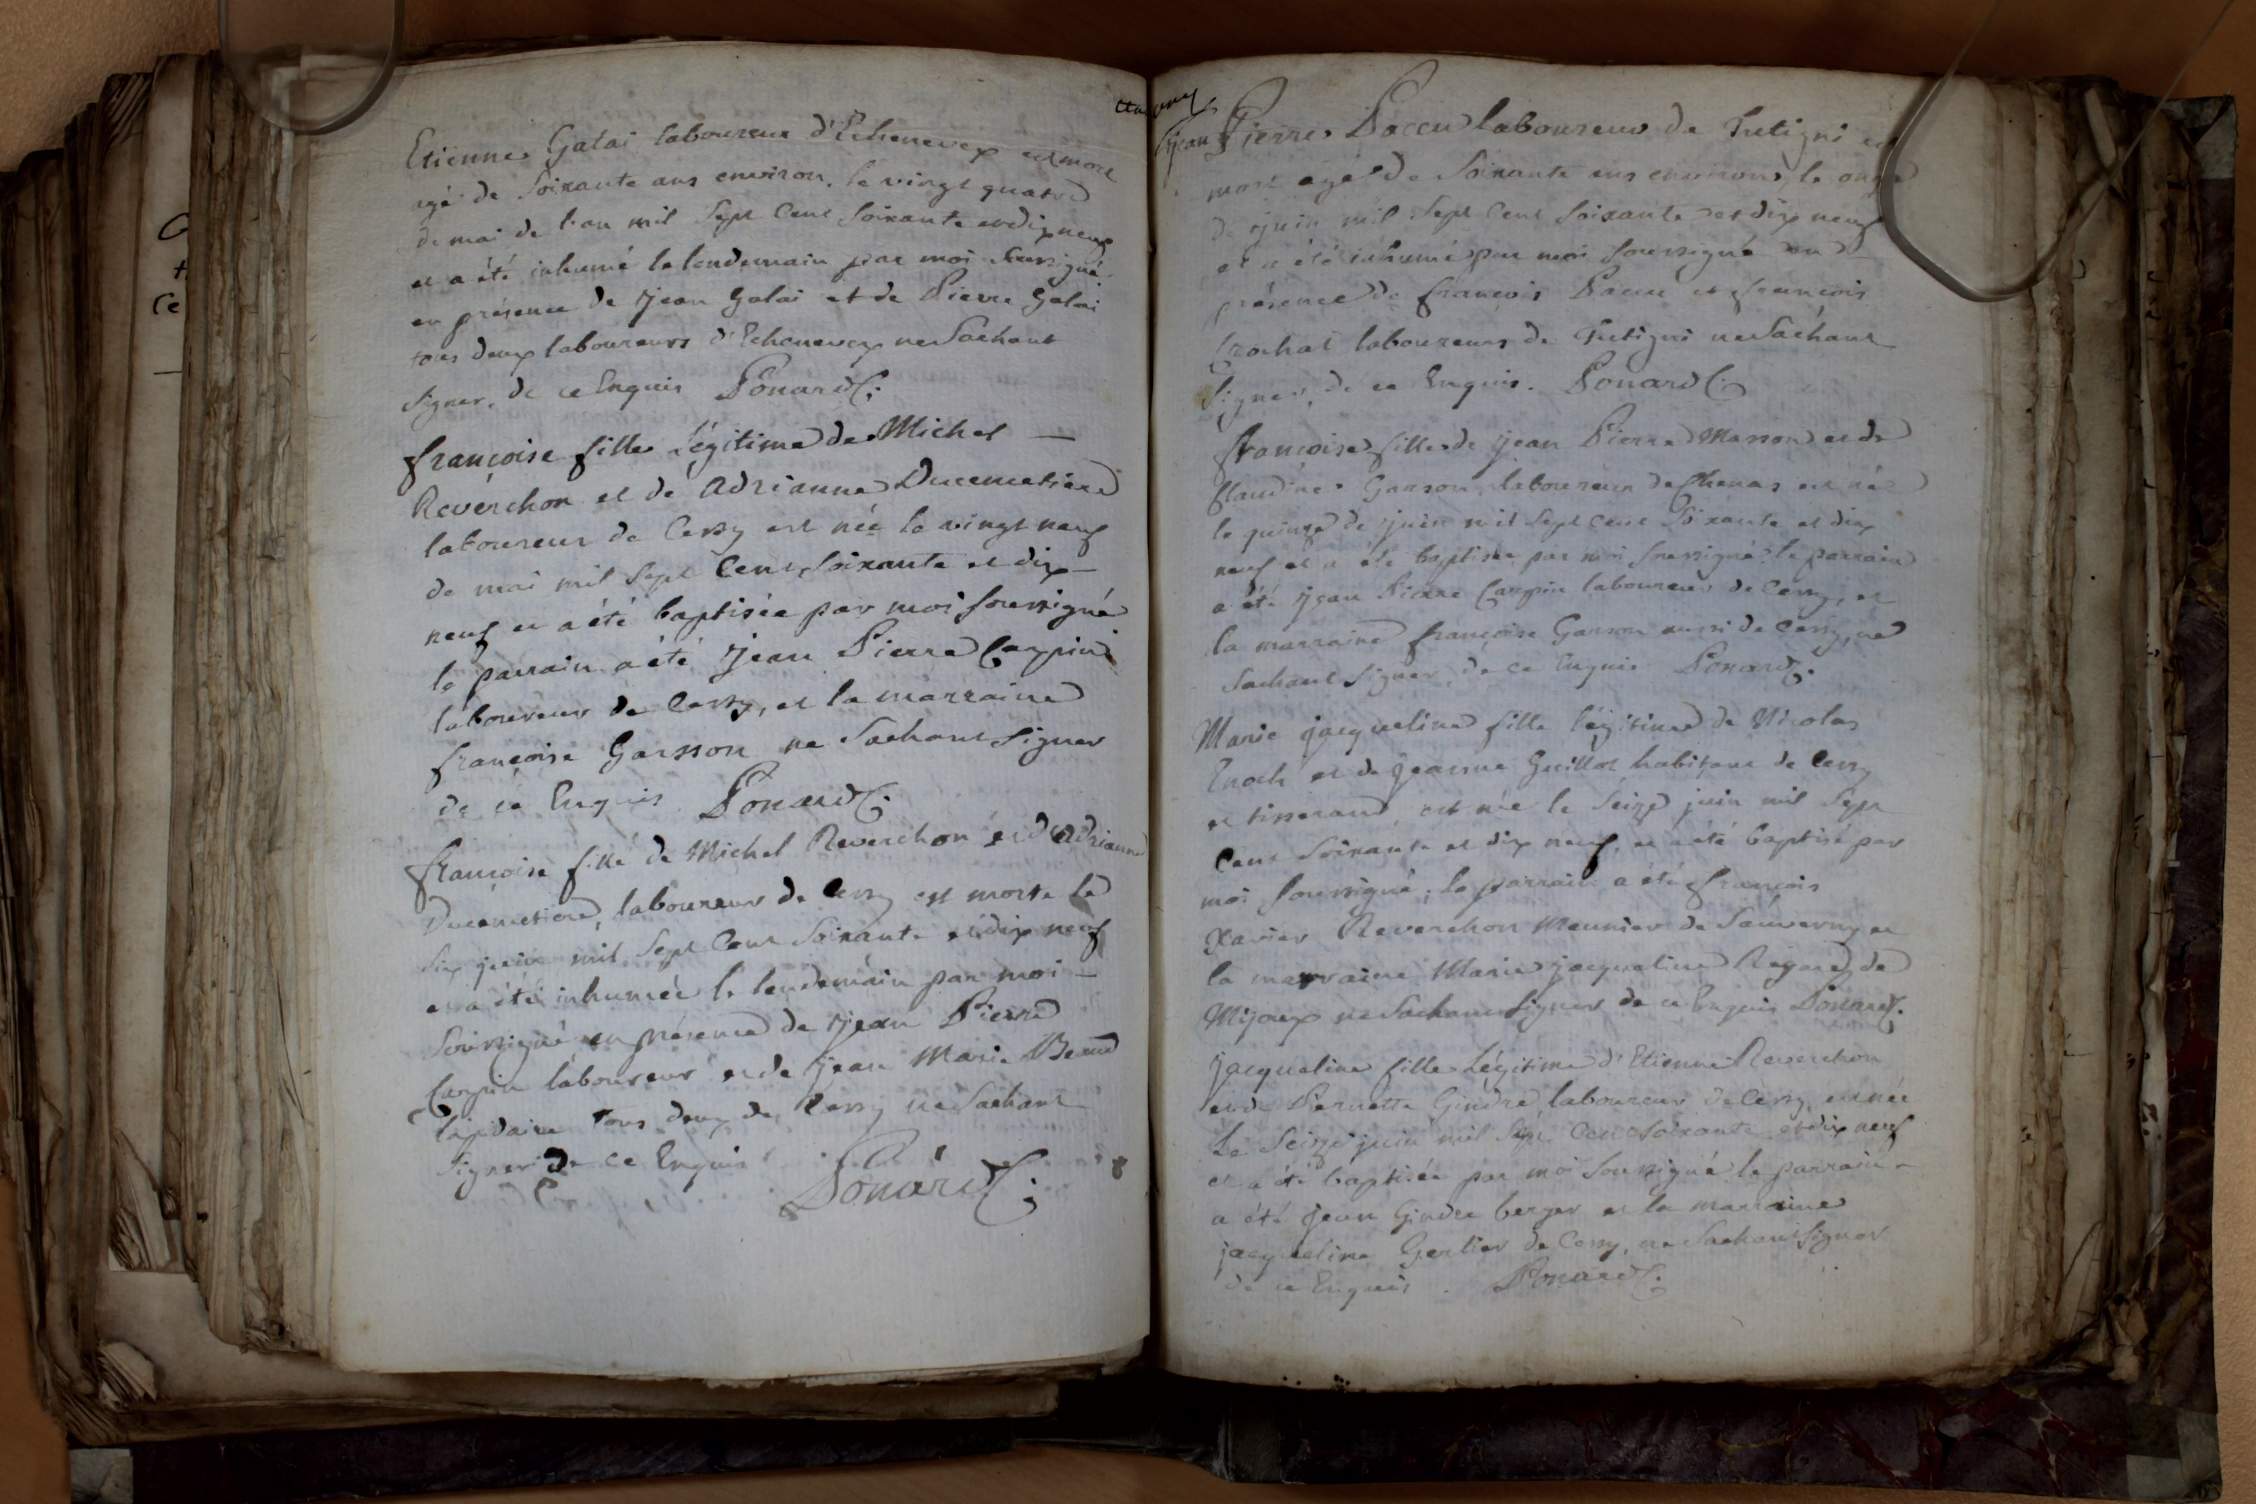 Etienne Galai laboureur d'Echenevex est mort
agé de soixante ans environ, le vingt quatre
de mai de l'an mil sept cent soixante et dix neuf
et a été inhumé le lendemain par moi soussigné
en présence de jean Galai et de Pierre Galai
tous deux laboureurs d'Echenevex ne sachant
signer, de ce Enquis Ponard C.
françoise fille Légitime de Michel —
Reverchon et de Adrianne Ducemetiere
laboureur de Cessy est née le vingt neuf
de mai mil sept cent soixante et dix —
neuf et a été baptisée par moi soussigné
le parrain a été jean Pierre Carpin
laboureur de Cessy, et la marraine
françoise Garsson ne sachant signer
de ce Enquis Ponard C.
françoise fille de Michel Reverchon et d'Adrianne
Ducemetiere, laboureur de Cessy est morte le
six juin mil sept cent soixante et dix neuf
et a été inhumée le lendemain par moi —
soussigné en présence de jean Pierre
Carpin laboureur et de jean Marie
lapidaire tous deux de Cessy ne sachant
signer de ce Enquis
Ponard C.
jean Pierre Paccu laboureur de Tutigni est
mort agé de soixante ans environ, le onze
de juin mil sept cent soixante et dix neuf
et a été inhumé par moi soussigné en
présence de françois Paccu et françois
Crochat laboureurs de Tutigni ne sachant
signer, de ce Enquis. Ponard C.
françoise fille de jean Pierre Masson et de
Claudine Garson, laboureur de Chenas est née
le quinze de juin mil sept cent soixante et dix
neuf et a été baptisée par moi soussigné le parrain
a été jean Pierre Carpin laboureur de Cessy, et
la marraine françoise Garson aussi de Cessy, ne
sachant signer, de ce Enquis Ponard C.
Marie jacqueline fille légitime de Nicolas
Enoch et de jeanne Guillot habitant de Cessy
et tisserand, est née le seize juin mil sept
cent soixante et dix neuf, et a été baptisé par
moi soussigné; le parrain a été françois
Xavier Reverchon Meunier de Sauverny et
la marraine Marie jacqueline Regard de
Mijoux ne sachant signer de ce Enquis Ponard C.
jacqueline fille Légitime d'Etienne Reverchon
et de Pernette Gindre, laboureur de Cessy, est née
Le seize juin mil sept cent soixante et dix neuf
et a été baptisée par moi soussigné le parrain
a été jean Gindre berger et la marraine
jacqueline Gerlier de Cessy, ne sachant signer
de ce Enquis. Ponard C.